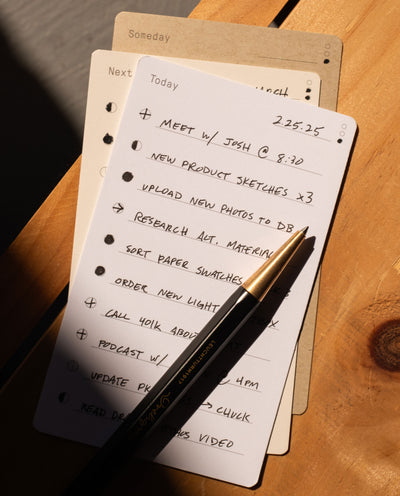 Someday
Next
Today
2.25.25
MEET w/ JOSH @ 8:30
NEW PRODUCT SKETCHES x3
UPLOAD NEW PHOTOS TO DB
RESEARCH ALT. MATERIAL
SORT PAPER SWATCHES
ORDER NEW LIGHT
CALL 401K ABOU
PODCAST w/ @ 4PM
UPDATE → CHUCK
READ VIDEO
LEUCHTTURM1917